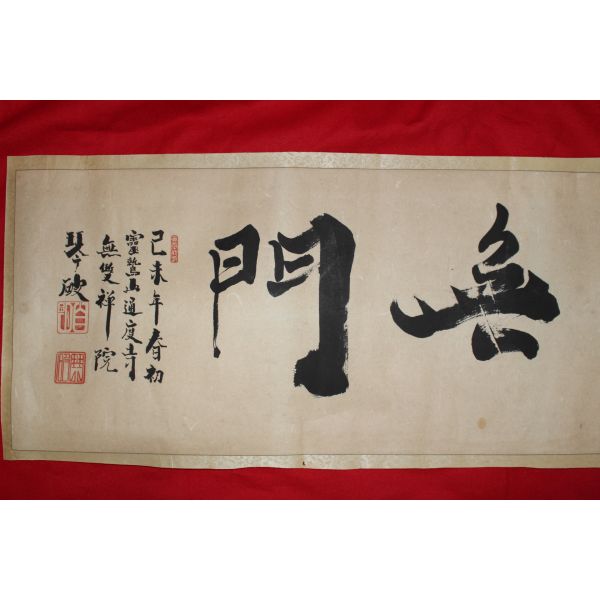 無門
己未年春初
靈鷲山通度寺
無雙禪院
琴